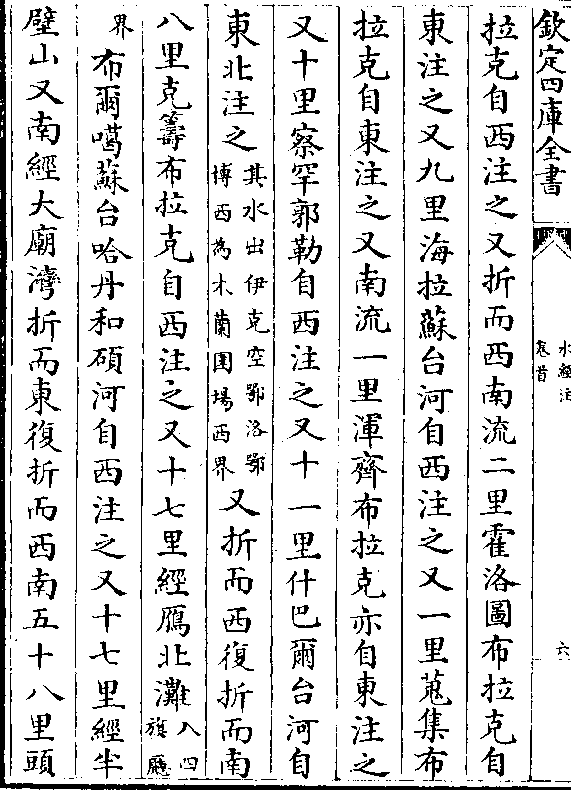 欽定四庫全書
水經注
卷首
六
拉克自西注之又折而西南流二里霍洛圖布拉克自
東注之又九里海拉蘇台河自西注之又一里蒐集布
拉克自東注之又南流一里渾齊布拉克亦自東注之
又十里察罕郭勒自西注之又十一里什巴爾台河自
東北注之其水出伊克空鄂洛鄂博西為木蘭圍場西界又折而西復折而南
八里克籌布拉克自西注之又十七里經鴈北灘八四旗廳
界布爾噶蘇台哈丹和碩河自西注之又十七里經半
壁山又南經大廟灣折而東復折而西南五十八里頭